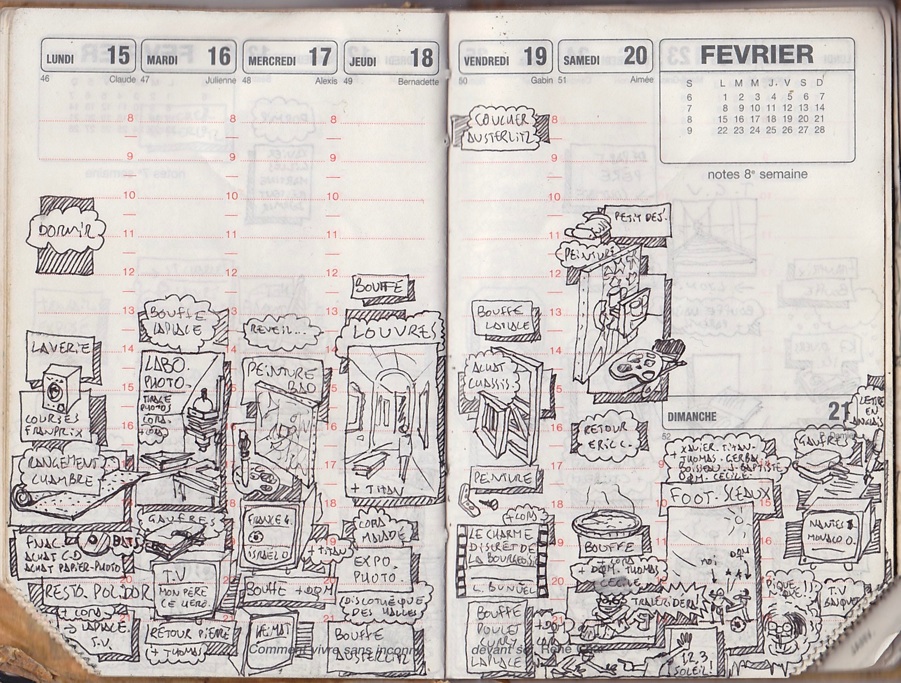 LUNDI 15
46 Claude
8
9
10
DORMIR
11
12
13
LAVERIE
14
15
COURSES
FRANPRIX
16
RANGEMENT
CHAMBRE
FNAC
ACHAT C.D
ACHAT PAPIER-PHOTO
RESTO. POLIDOR
T.V.
MARDI 16
47 Julienne
8
9
10
11
12
13
BOUFFE
LAPIALE
14
LABO.
PHOTO.
TIRAGE
PHOTOS
GAUFRES
T.V
MON PÈRE
CE HÉRO.
RETOUR PIERRE
+ THOMAS
MERCREDI 17
48 Alexis
8
9
10
11
12
13
REVEIL...
14
PEINTURE
BAO
FRANCE 4.
ISRAEL 0
+ TITAN
BOUFFE + DOM
HEIMAT
JEUDI 18
49 Bernadette
BOUFFE
LOUVRES
+ TITAN
CORA
MALADE
EXPO.
PHOTO.
DISCOTHÉQUE
DES HALLES
BOUFFE
AUSTERLITZ
Comment vivre sans inconnu
VENDREDI 19
50 Gabin
COUCHER
AUSTERLITZ
BOUFFE
LAPIALE
ACHAT
CHASSIS
PEINTURE
+ CORA
LE CHARME
DISCRET DE
LA BOURGEOISIE
L. BUNUEL
BOUFFE
POULET
CURRY
LAPIALE
devant soi, René
SAMEDI 20
51 Aimée
PETIT DEJ.
PEINTURE
RETOUR
ERIC C.
BOUFFE
+ CORA
+ DOM. THOMAS
CECILE
1,2,3
SOLEIL!
FEVRIER
S L M M J V S D
6 1 2 3 4 5 6 7
7 8 9 10 11 12 13 14
8 15 16 17 18 19 20 21
9 22 23 24 25 26 27 28
notes 8e semaine
DIMANCHE 21
52
+ XAVIER. TITAN.
+ THOMAS. CERBA
J. BAPTISTE
DOM. CECILE.
FOOT. SCEAUX
moi
DOM
LETTRE
EN
ANGLAIS
GAUFRES
NANTES 1
MONACO 0.
PIQUE..!!
T.V